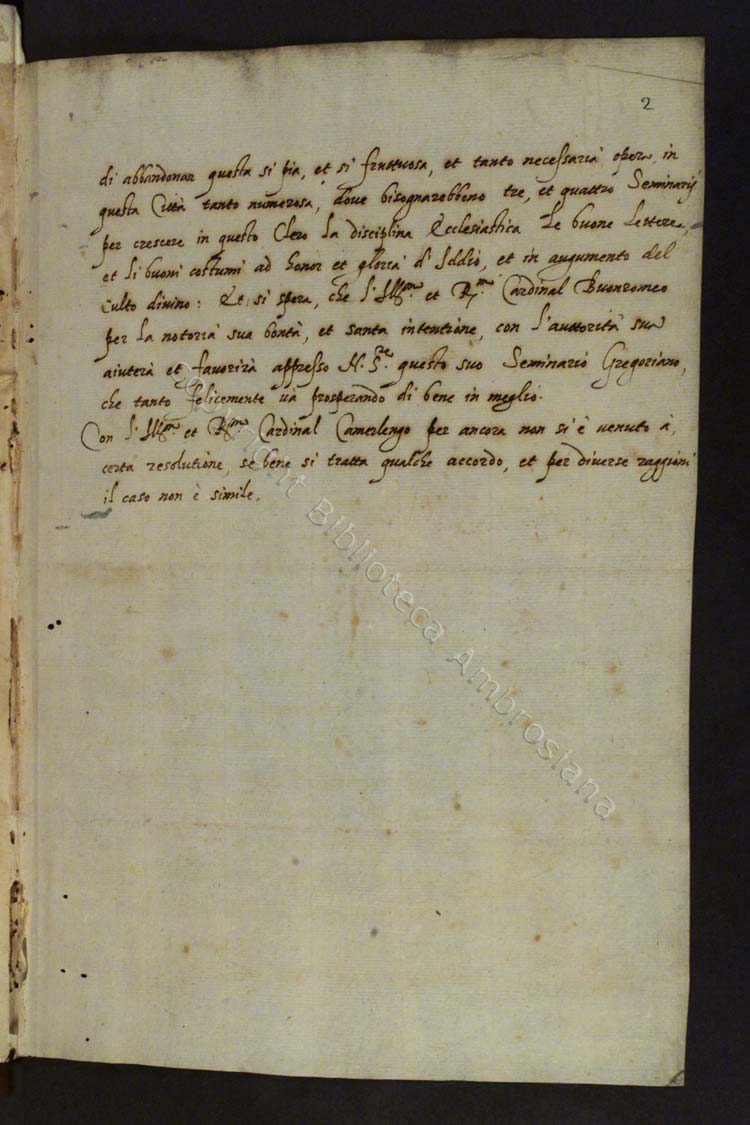 2
di abbandonar questa si pia, et si fruttuosa, et tanto necessaria opera, in
questa Città tanto numerosa, dove bisognarebbono tre, et quattro Seminarij
per crescere in questo Clero la disciplina Ecclesiastica le buone lettere,
et li buoni costumi ad honor et gloria d'Iddio, et in augumento del
culto divino: Et si spera, che l'Ill.mo et R.mo Cardinal Buonromeo
per la notoria sua bontà, et santa intentione, con l'auttorità sua
aiuterà et favorirà appresso N. S.re questo suo Seminario Gregoriano,
che tanto felicemente và prosperando di bene in meglio.
Con l'Ill.mo et R.mo Cardinal Camerlengo per ancora non si è venuto à
certa resolutione, se bene si tratta qualche accordo, et per diverse raggioni
il caso non è simile.
Copyright Biblioteca Ambrosiana